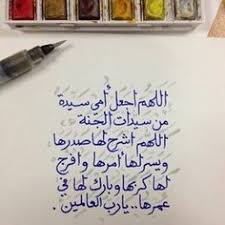 اللهم أجعل أمي سيدة
من سيدات الجنة
اللهم اشرح لها صدرها
ويسر لها أمرها وافرج
لها كربها وبارك لها في
عمرها.. يارب العالمين.